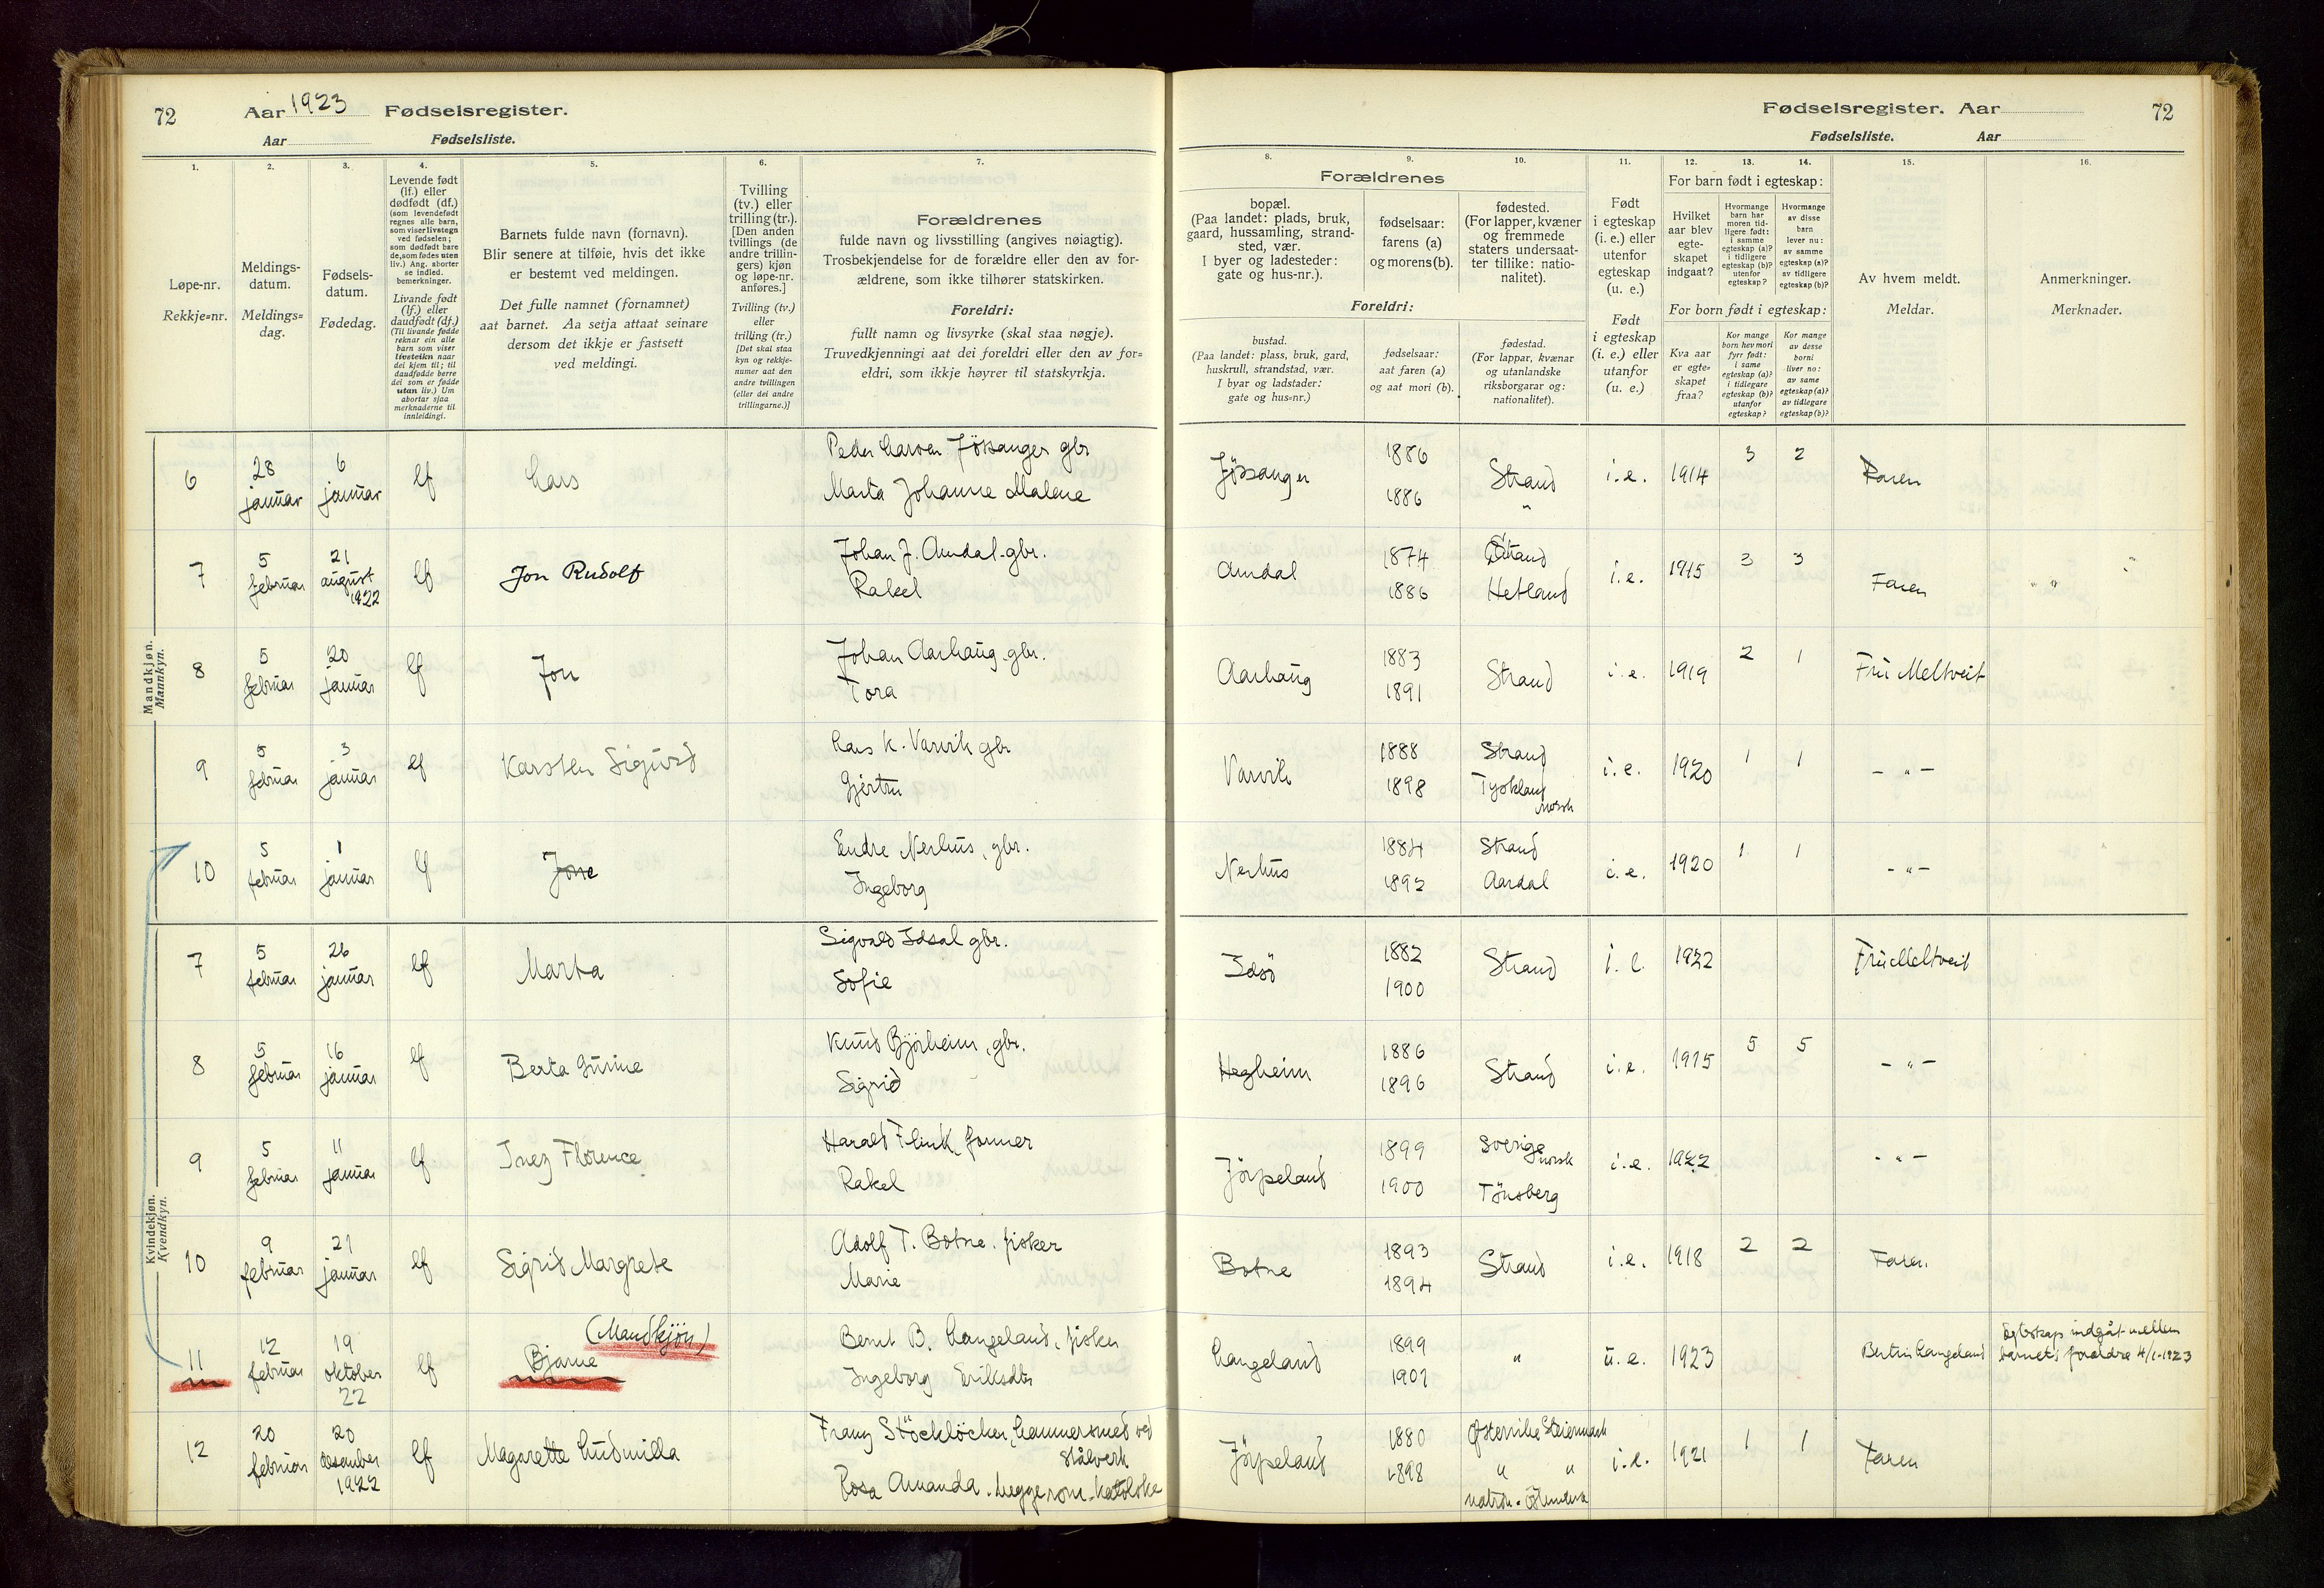 72 Aar 1923 Fødselsregister.
Aar Fødselsliste.
Fødselsregister. Aar 72
Fødselsliste. Aar
1. 2. 3. 4. 5. 6. 7. 8. 9. 10. 11. 12. 13. 14. 15. 16.
Løpe-nr.
Rekkje-nr.
Meldings-
datum.
Meldings-
dag.
Fødsels-
datum.
Fødedag.
Levende født
(lf.) eller
dødfødt (df.)
(som levendefødt
regnes alle barn,
som viser livstegn
ved fødselen;
som dødfødt bare
de, som fødes uten
liv.) Ang. aborter
se indled.
bemerkninger.
Livande født
(lf.) eller
daudfødt (df.)
(Til livande fødde
reknar ein alle
barn som viser
livsteikn naar
dei kjem til; til
daudfødde berre
dei som er fødde
utan liv.) Um
abortar sjaa
merknaderne til
innleidingi.
Barnets fulde navn (fornavn).
Blir senere at tilføie, hvis det ikke
er bestemt ved meldingen.
Det fulle namnet (fornamnet)
aat barnet. Aa setja attaat seinare
dersom det ikkje er fastsett
ved meldingi.
Tvilling
(tv.) eller
trilling (tr.).
[Den anden
tvillings (de
andre trillin-
gers) kjøn
og løpe-nr.
anføres.]
Tvilling (tv.)
eller
trilling (tr.)
[Det skal staa
kyn og rekkje-
numer aat den
andre tvillingen
(eller dei andre
trillingarne.)]
Forældrenes
fulde navn og livsstilling (angives nøiagtig).
Trosbekjendelse for de forældre eller den av for-
ældrene, som ikke tilhører statskirken.
Foreldri:
fullt namn og livsyrke (skal staa nøgje).
Truvedkjenningi aat dei foreldri eller den av for-
eldri, som ikkje høyrer til statskyrkja.
Forældrenes
bopæl.
(Paa landet: plads, bruk,
gaard, hussamling, strand-
sted, vær.
I byer og ladesteder:
gate og hus-nr.).
fødselsaar:
farens (a)
og morens (b).
fødested.
(For lapper, kvæner
og fremmede
staters undersaat-
ter tillike: natio-
nalitet).
Foreldri:
bustad.
(Paa landet: plass, bruk, gard,
huskrull, strandstad, vær.
I byar og ladstader:
gate og hus-nr.)
fødselsaar:
aat faren (a)
og aat mori (b).
fødestad.
(For lappar, kvænar
og utanlandske
riksborgarar og:
nationalitet).
Født
i egteskap
(i. e.) eller
utenfor
egteskap
(u. e.)
Født
i egteskap
(i. e.) eller
utanfor
(u. e.)
For barn født i egteskap:
Hvilket
aar blev
egte-
skapet
indgaat?
Hvormange
barn har
moren tid-
ligere født:
i samme
egteskap (a)?
i tidligere
egteskap (b)?
utenfor
egteskap?
Hvormange
av disse
barn
lever nu:
av samme
egteskap (a)?
av tidligere
egteskap (b)?
For born født i egteskap:
Kva aar
er egte-
skapet
fraa?
Kor mange
born hev mori
fyrr født:
i same
egteskap (a)?
i tidlegare
egteskap (b)?
utanfor
egteskap?
Kor mange
av desse
borni
liver no:
av same
egteskap (a)?
av tidlegare
egteskap (b)?
Av hvem meldt.
Meldar.
Anmerkninger.
Merknader.
Mandkjøn.
Mannkyn.
6 28 januar 6 januar lf Lars Peder Larsen Jøssanger gbr Jössanger 1886 Strand i.e. 1914 3 2 Faren
Marta Johanne Malene 1886 "
7 5 februar 21 august 1922 lf Jon Rudolf Johan J. Amdal gbr. Amdal 1874 Strand i.e. 1915 3 3 Faren
Rakel 1886 Hetland
8 5 februar 20 januar lf Jon Johan Aarhaug gbr. Aarhaug 1883 Strand i.e. 1919 2 1 Fru Meltveit
Tora 1891
9 5 februar 3 januar lf Karsten Sigurd Lars K. Varvik gbr Varvik 1888 Strand i.e. 1920 1 1 – " –
Gjertru 1898 Tyskland norsk
10 5 februar 1 januar lf Jone Endre Nerhus, gbr. Nerhus 1884 Strand i.e. 1920 1 1 - " -
Ingeborg 1892 Aardal
Kvindekjøn.
Kvendkyn.
7 5 februar 26 januar lf Marta Sigvald Idsal gbr. Idsö 1882 Strand i.e. 1922 Fru Meltveit
Sofie 1900
8 5 februar 16 januar lf Berta Gurine Knud Bjørheim, gbr. Hegheim 1886 Strand i.e. 1915 5 5 – " –
Sigrid 1896
9 5 februar 11 januar lf Inez Florence Harald Flink, former Jörpeland 1899 Sverige norsk i.e. 1922 - " -
Rakel 1900 Tönsberg
10 9 februar 21 januar lf Sigrid Margrete Adolf T. Botne. fisker Botne 1893 Strand i.e. 1918 2 2 Faren
Marie 1894
11 12 februar 19 oktober 22 lf (Mandkjön) Bjarne Bernt B. Langeland, fisker Langeland 1899 " u.e. 1923 Langeland Egteskap indgåt mellem
Ingeborg Eriksdtr 1901 barnets forældre 4/1-1923
12 20 februar 20 desember 1922 lf Magarette Ludmilla Franz Stöcklöcker, hammersmed ved Stålverk Jörpeland 1880 Østerrike Steiermark i.e. 1921 1 1 Faren
Rosa Amanda. begge rom. katolske 1898 " "